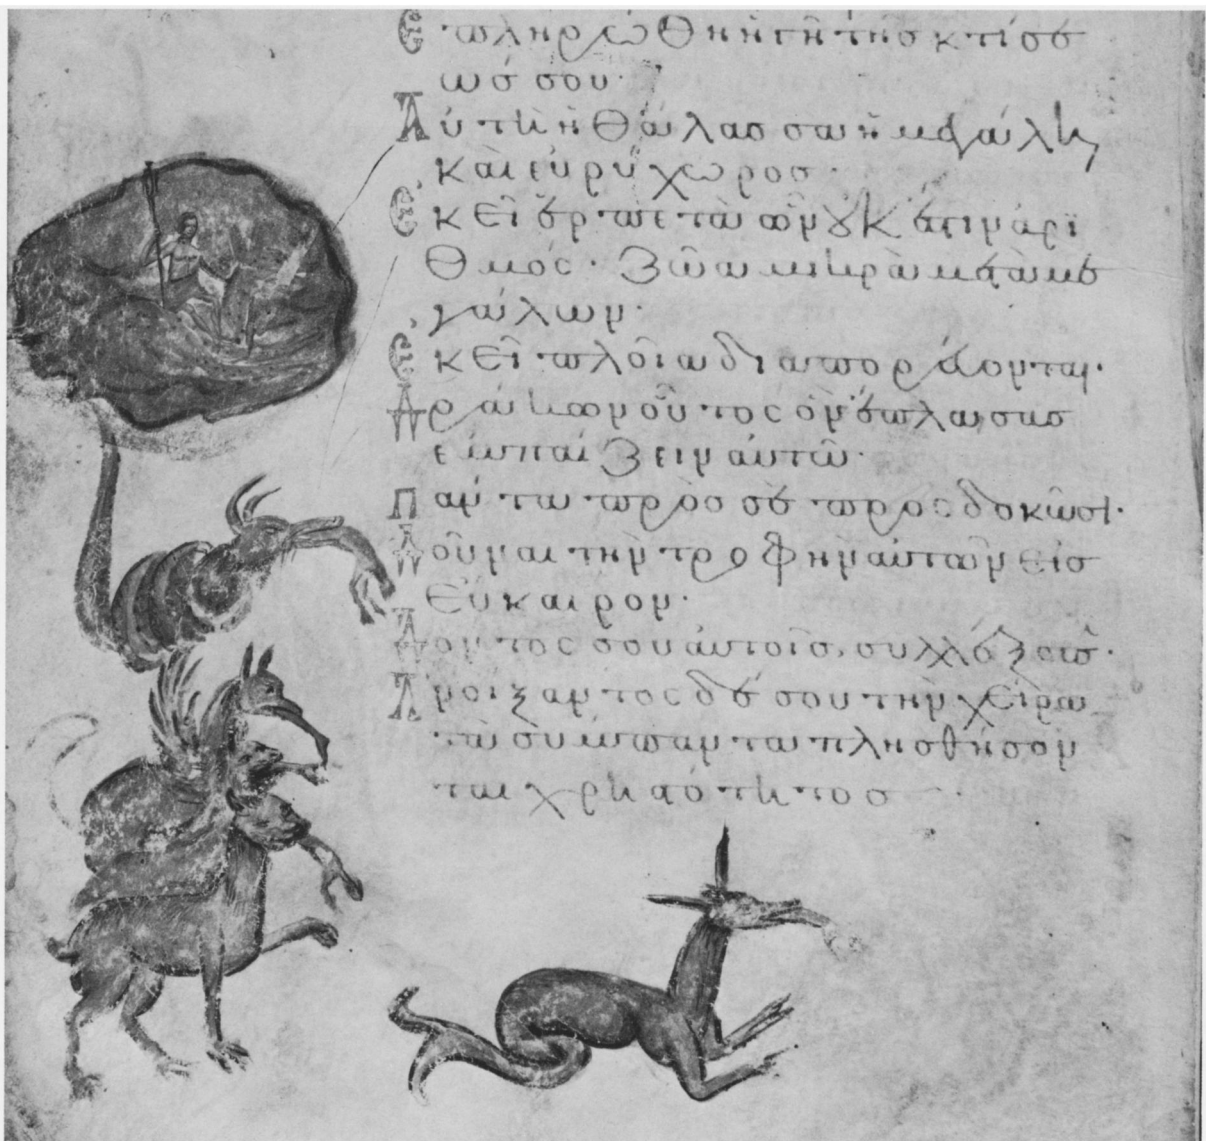 Ἐπληρώθη ἡ γῆ τῆς κτίσε
ώς σου·
Αὕτη ἡ θάλασσα ἡ μεγάλη
καὶ εὐρύχωρος·
Ἐκεῖ ἑρπετὰ ὧν οὐκ ἔστιν ἀρι
θμός· ζῶα μικρὰ μετὰ με
γάλων·
Ἐκεῖ πλοῖα διαπορεύονται·
Δράκων οὗτος ὃν ἔπλασας
ἐμπαίζειν αὐτῶ·
Πάντα πρὸς σὲ προσδοκῶσι·
Δοῦναι τὴν τροφὴν αὐτῶν εἰς
εὔκαιρον·
Δόντος σου αὐτοῖς, συλλέξουσιν·
Ἀνοίξαντος δέ σου τὴν χεῖρα
τὰ σύμπαντα πλησθήσον
ται χρηστότητος·